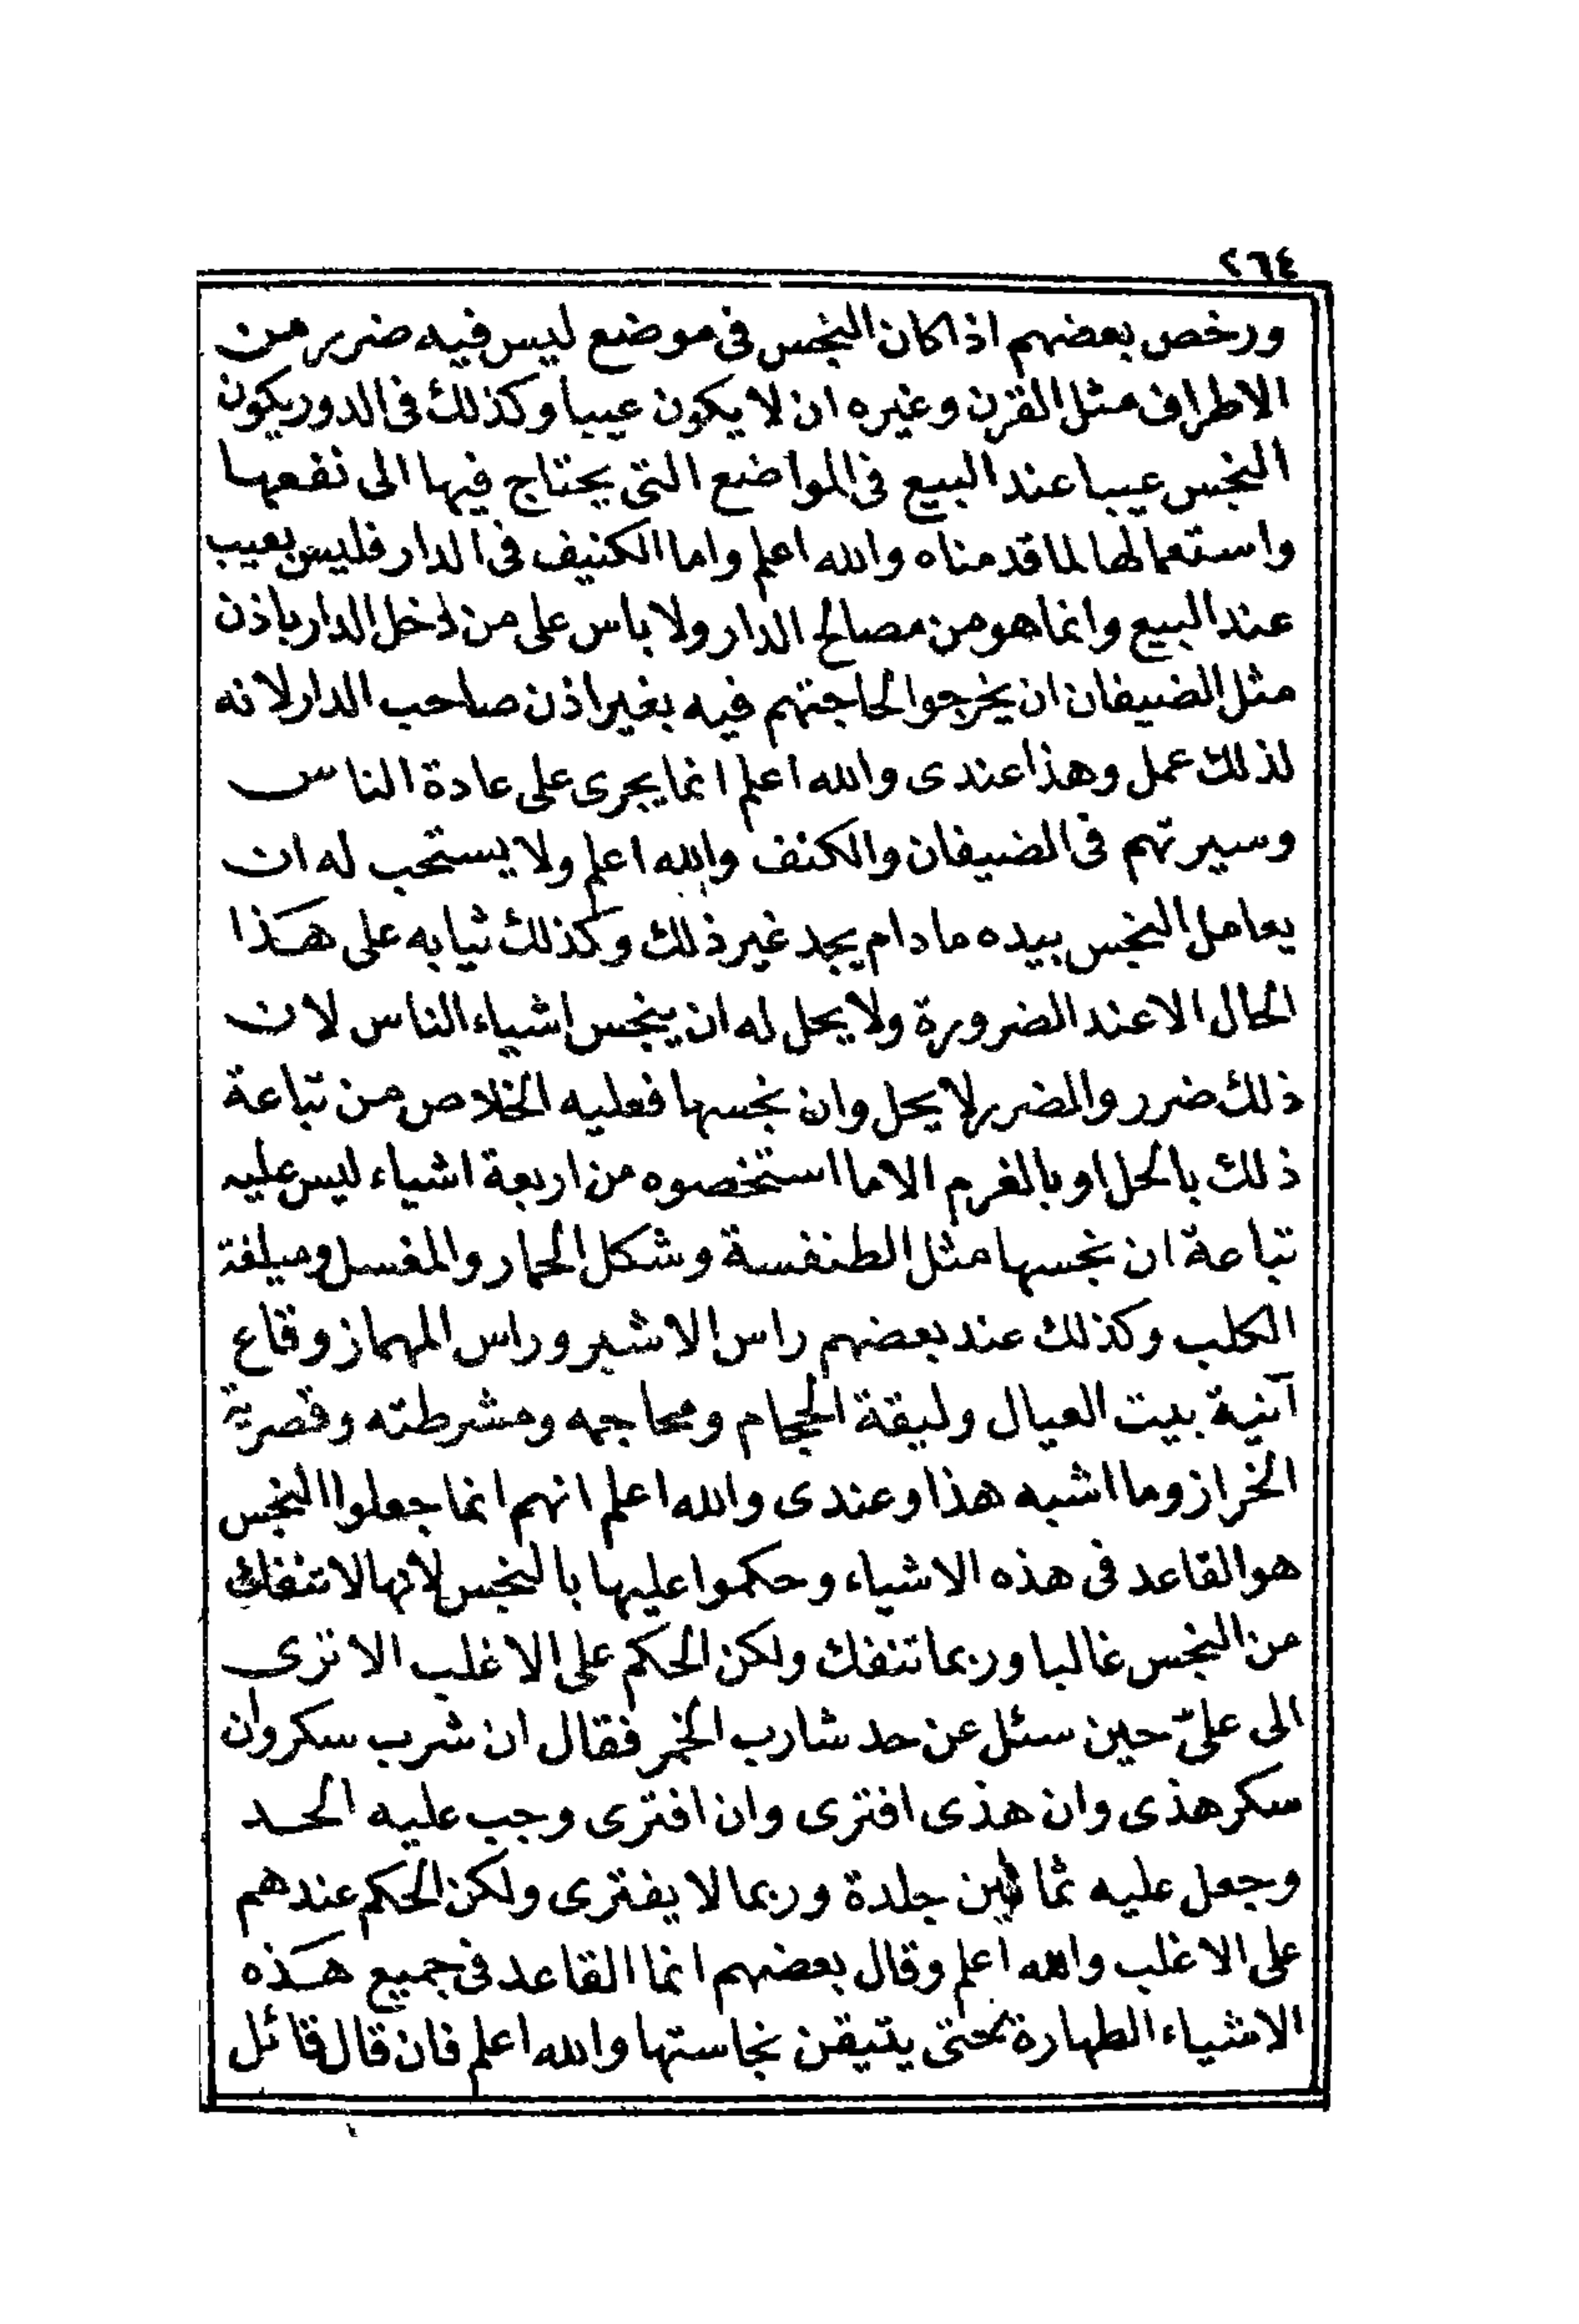 ٢٦٤
ورخص بعضهم اذا كان النجس فى موضع ليس فيه ضرر من
الاطراف مثل القرن وغيره ان لا يكون عيبا وكذلك فى الدور يكون
النجس عيبا عند البيع فى المواضع التى يحتاج فيها الى نفعها
واستعمالها لما قدمناه والله اعلم واما الكنيف فى الدار فليس بعيب
عند البيع وانما هو من مصالح الدار ولا باس على من دخل الدار باذن
مثل الضيفان ان يخرجوا لحاجتهم فيه بغير اذن صاحب الدار لانه
لذلك عمل وهذا عندى والله اعلم انما يجرى على عادة الناس
وسيرتهم فى الضيفان والكنف والله اعلم ولا يستحب له ان
يعامل النجس بيده ما دام يجد غير ذلك وكذلك ثيابه على هذا
الحال الا عند الضرورة ولا يحل له ان ينجس اشياء الناس لان
ذلك ضرر والمضرر لا يحل وان نجسها فعليه الخلاص من تباعة
ذلك بالحل او بالغرم الا ما استخصوه من اربعة اشياء ليس عليه
تباعة ان نجسها مثل الطنفسة وشكل الحمار والمغسل وميلغة
الكلب وكذلك عند بعضهم راس الاشبر وراس المهماز وقاع
آنية بيت العيال وليقة الحجام ومحاجمه ومشرطته وقصرية
الخراز وما اشبه هذا وعندى والله اعلم انهم انما جعلوا النجس
هو القاعد فى هذه الاشياء وحكموا عليها بالنجس لانها لا تنفك
من النجس غالبا وربما تنفك ولكن الحكم على الاغلب الا ترى
الى علىّ حين سئل عن حد شارب الخمر فقال ان شرب سكر وان
سكر هذى وان هذى افترى وان افترى وجب عليه الحد
وجعل عليه ثمانين جلدة وربما لا يفترى ولكن الحكم عندهم
على الاغلب والله اعلم وقال بعضهم انما القاعد فى جميع هذه
الاشياء الطهارة حتى يتيقن نجاستها والله اعلم فان قال قائل